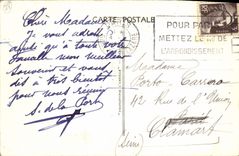 CARTE POSTALE
Chère Madame
Je vous adresse
ainsi qu'à toute votre
famille nos meilleurs
souvenirs et vous
dis à très bientôt
pour nous réunir
S. de la Porte
POUR PARIS
METTEZ LE Nº DE
L'ARRONDISSEMENT
Madame
Porto-Carrero
42 Rue de
Clamart
(Seine)